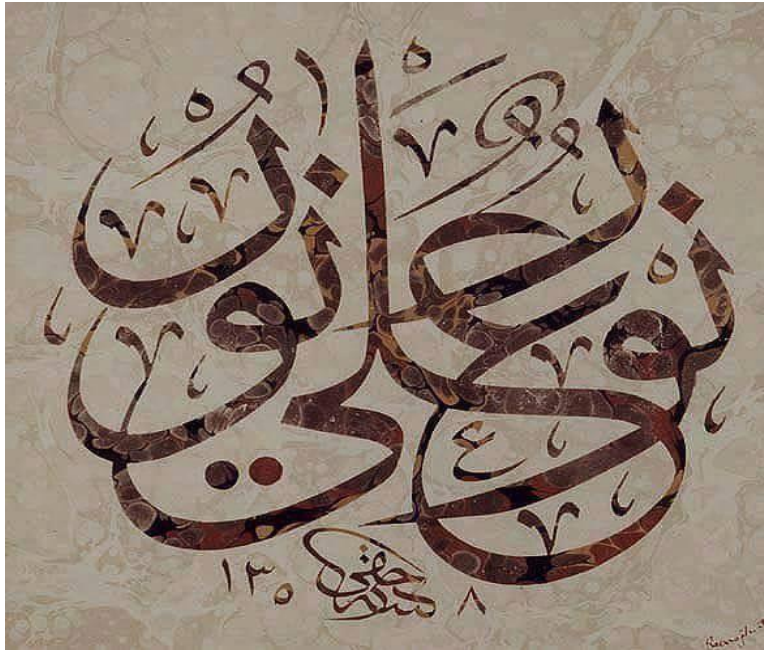 نور على نور
حقي
١٣٥٨